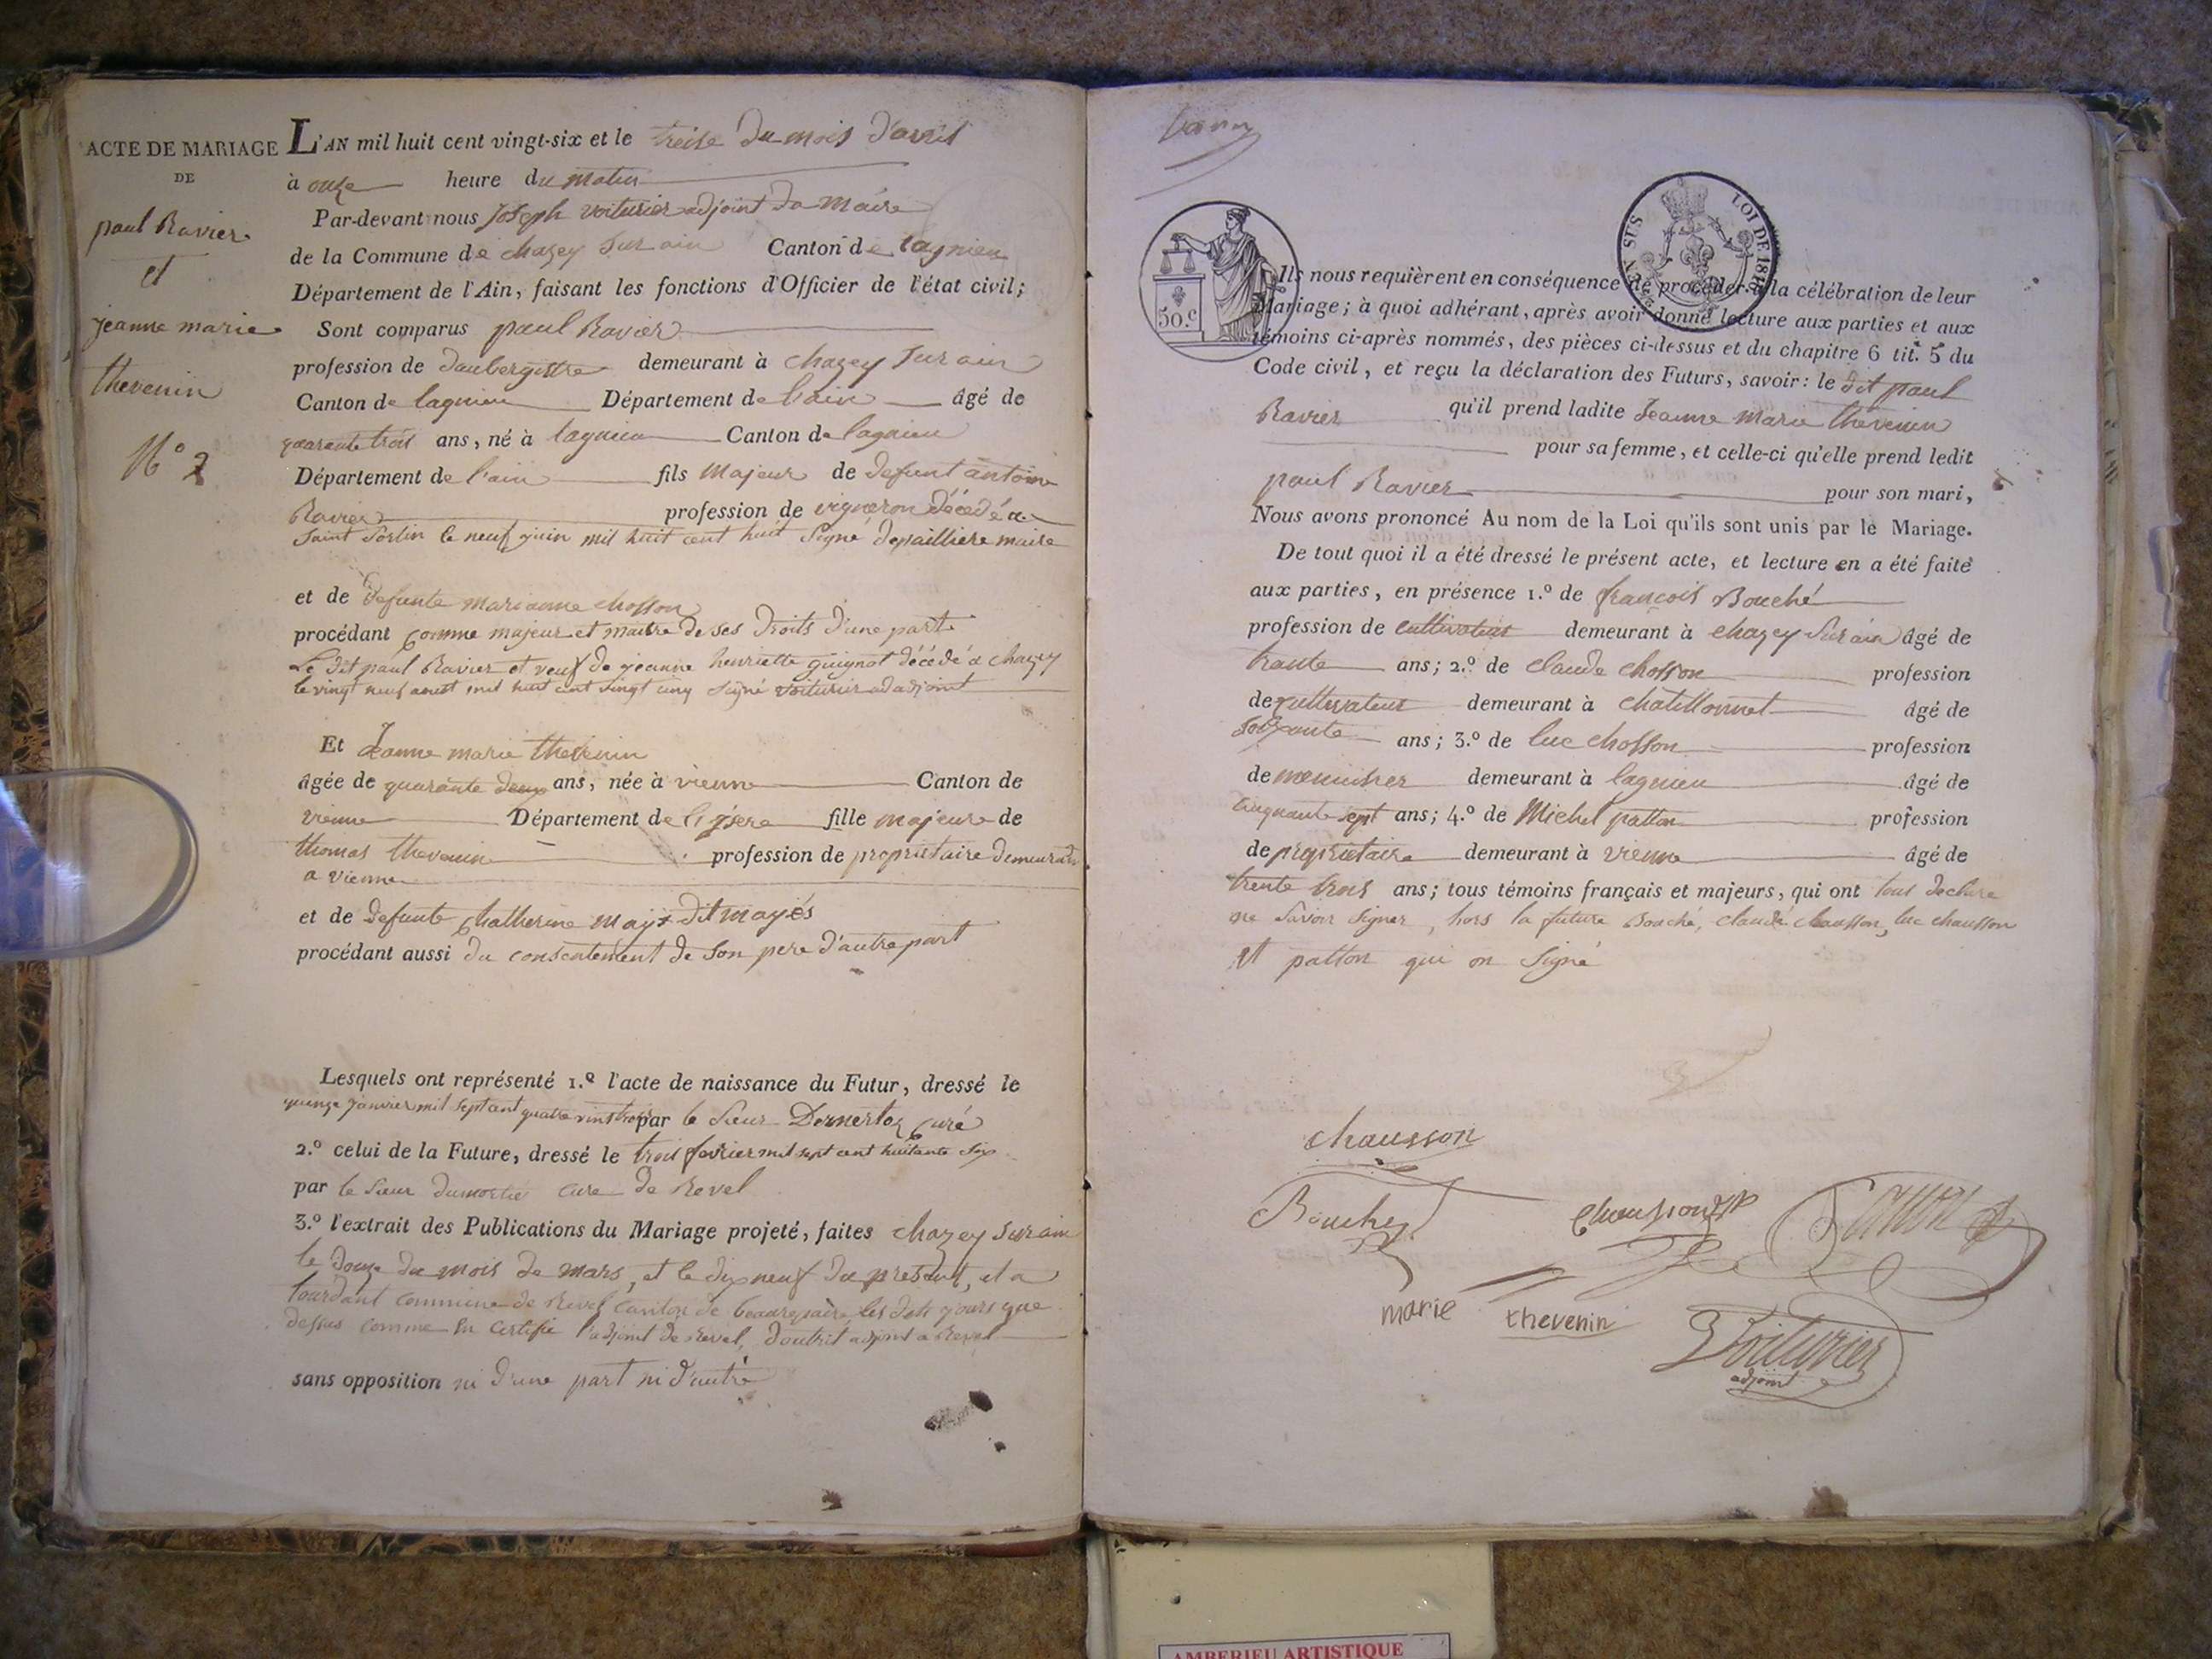 ACTE DE MARIAGE
DE
paul Ravier
et
jeanne marie
thevenin
N° 2
L'AN mil huit cent vingt-six et le treise du mois d'avril
à onze heure du matin
Par-devant nous Joseph voiturier adjoint du Maire
de la Commune de chazey sur ain Canton de lagnieu
Département de l'Ain, faisant les fonctions d'Officier de l'état civil;
Sont comparus paul Ravier
profession de daubergistre demeurant à chazey sur ain
Canton de lagnieu Département de l'ain âgé de
quarante trois ans, né à lagnieu Canton de lagnieu
Département de l'ain fils majeur de defunt antoine
Ravier profession de vigneron décédé a
saint Sorlin le neuf juin mil huit cent huit Signé depailliere maire
et de defunte marianne chosson
procédant comme majeur et maitre de ses droits d'une part
Le dit paul Ravier et veuf de jeanne henriette guignot décédé a chazey
le vingt neuf aoust mil huit cent vingt cinq signé voiturier adjoint
Et Jeanne marie thevenin
âgée de quarante deux ans, née à vienne Canton de
vienne Département de l'isere fille majeure de
thomas thevenin profession de propriétaire demeurant
a vienne
et de defunte Chatherine dit mayés
procédant aussi du consentement de son pere d'autre part
Lesquels ont représenté 1.º l'acte de naissance du Futur, dressé le
quinze janvier mil sept cent quatre vint trois par le Sieur curé
2.º celui de la Future, dressé le trois fevrier mil sept cent huitante six
par le Sieur dumortie cure de Revel
3.º l'extrait des Publications du Mariage projeté, faites chazey sur ain
le douze du mois de mars, et le dix neuf du présent, et a
tourdant commune de Revel canton de beaurepaire les dits jours que
dessus comme en certifie l'adjoint de Revel, adjoint a Revel
sans opposition ni d'une part ni d'autre
50.c
LOI DE 1816
Ils nous requièrent en conséquence de procéder à la célébration de leur
Mariage; à quoi adhérant, après avoir donné lecture aux parties et aux
témoins ci-après nommés, des pièces ci-dessus et du chapitre 6 tit. 5 du
Code civil, et reçu la déclaration des Futurs, savoir: le dit paul
Ravier qu'il prend ladite Jeanne Marie thevenin
pour sa femme, et celle-ci qu'elle prend ledit
paul Ravier pour son mari,
Nous avons prononcé Au nom de la Loi qu'ils sont unis par le Mariage.
De tout quoi il a été dressé le présent acte, et lecture en a été faite
aux parties, en présence 1.º de françois Bouché
profession de cultivateur demeurant à chazey sur ain âgé de
trante ans; 2.º de claude chosson profession
de cultivateur demeurant à chatillonnet âgé de
soixante ans; 3.º de luc chosson profession
de menuisier demeurant à lagnieu âgé de
cinquante sept ans; 4.º de Michel patton profession
de propriétaire demeurant à vienne âgé de
trente trois ans; tous témoins français et majeurs, qui ont tous declare
ne savoir signer, hors la future Bouché, claude chausson, luc chausson
et patton qui on signé
chausson
Bouché chausson patton
marie thevenin
Voiturier
adjoint
AMBERIEU ARTISTIQUE